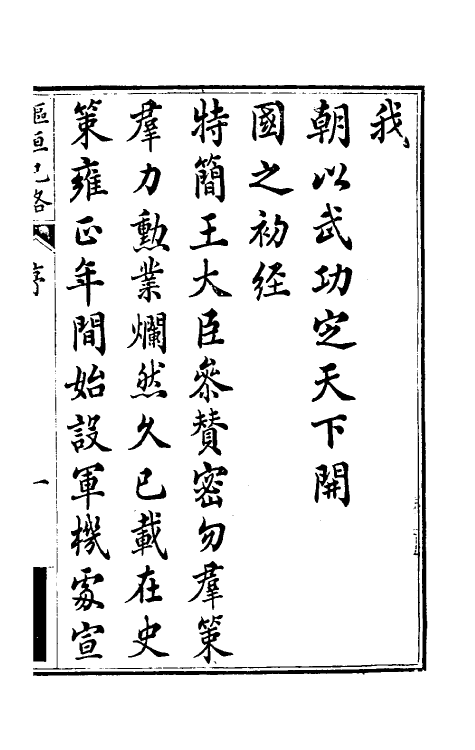 我
朝以武功定天下開
國之初経
特簡王大臣叅賛密勿羣策
羣力勲業爛然久已載在史
策雍正年間始設軍機䖏宣
樞垣已畧
序
一